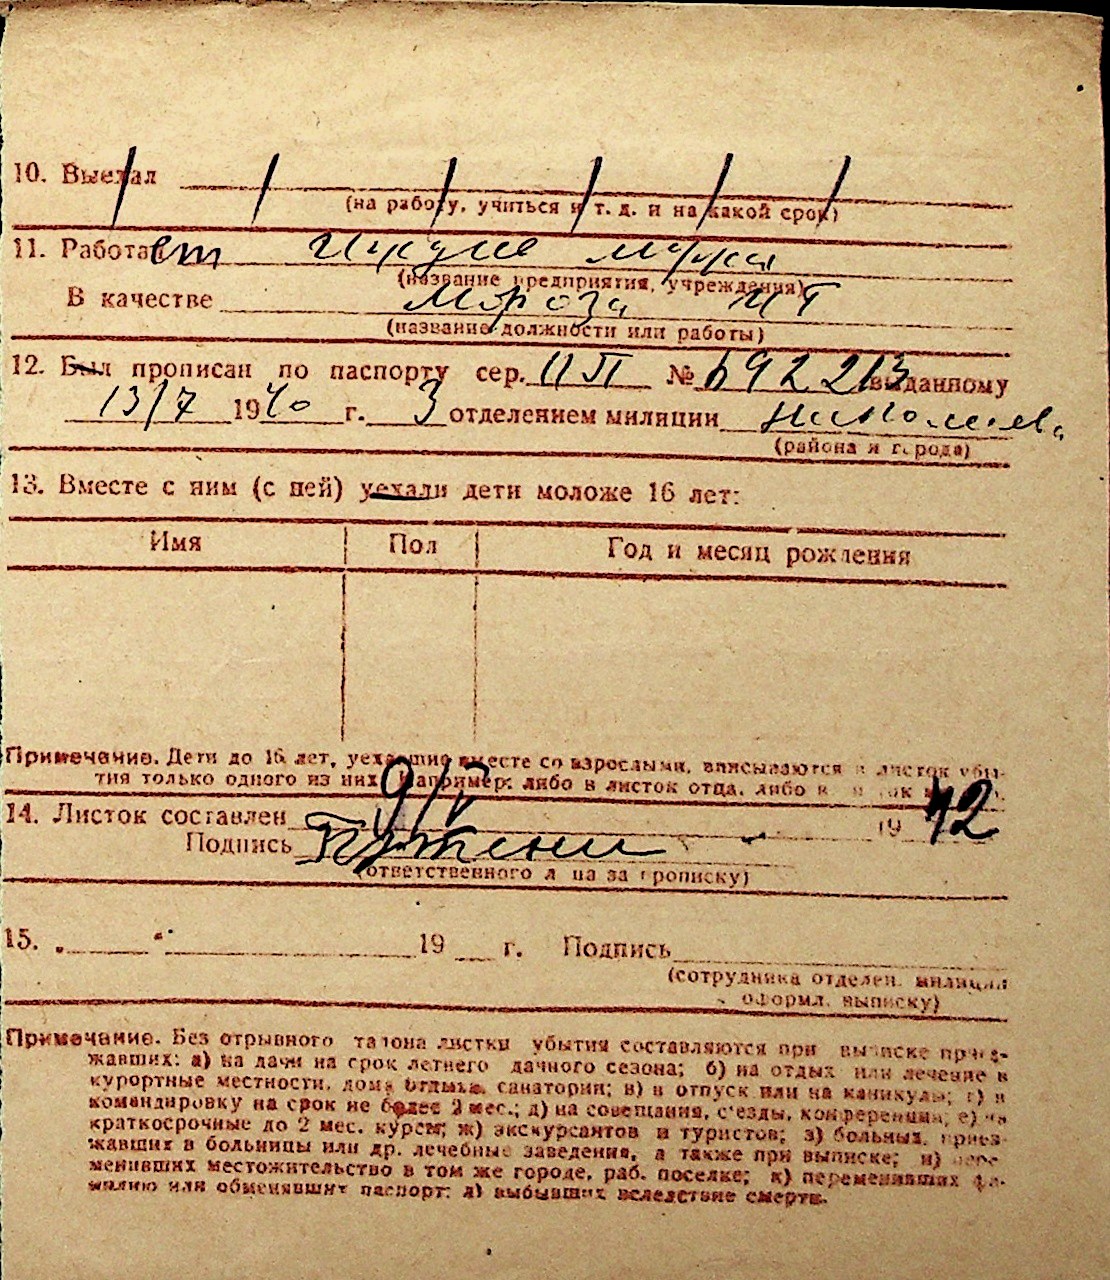 10. Выехал
(на работу, учиться и т. д. и на какой срок)
11. Работает
(название предприятия, учреждения)
В качестве
(название должности или работы)
12. Был прописан по паспорту сер. IIП № 692213 выданному
13/7 1940 г. 3 отделением милиции
(района и города)
13. Вместе с ним (с ней) уехали дети моложе 16 лет:
Имя Пол Год и месяц рождения
Примечание. Дети до 16 лет, уехавшие вместе со взрослыми, вписываются в листок убы-
тия только одного из них. Например: либо в листок отца, либо в
14. Листок составлен 9/V 1942
Подпись
(ответственного лица за прописку)
15. „ “ 19 г. Подпись
(сотрудника отделен. милиции
оформл. выписку)
Примечание. Без отрывного талона листки убытия составляются при выписке приез-
жавших: а) на дачи на срок летнего дачного сезона; б) на отдых или лечение в
курортные местности, дома отдыха, санатории; в) в отпуск или на каникулы; г) в
командировку на срок не более 2 мес.; д) на совещания, с'езды, конференции; е) на
краткосрочные до 2 мес. курсы; ж) экскурсантов и туристов; з) больных, приез-
жавших в больницы или др. лечебные заведения, а также при выписке; и) пере-
менивших местожительство в том же городе, раб. поселке; к) переменивших фа-
милию или обменявших паспорт; л) выбывших вследствие смерти.